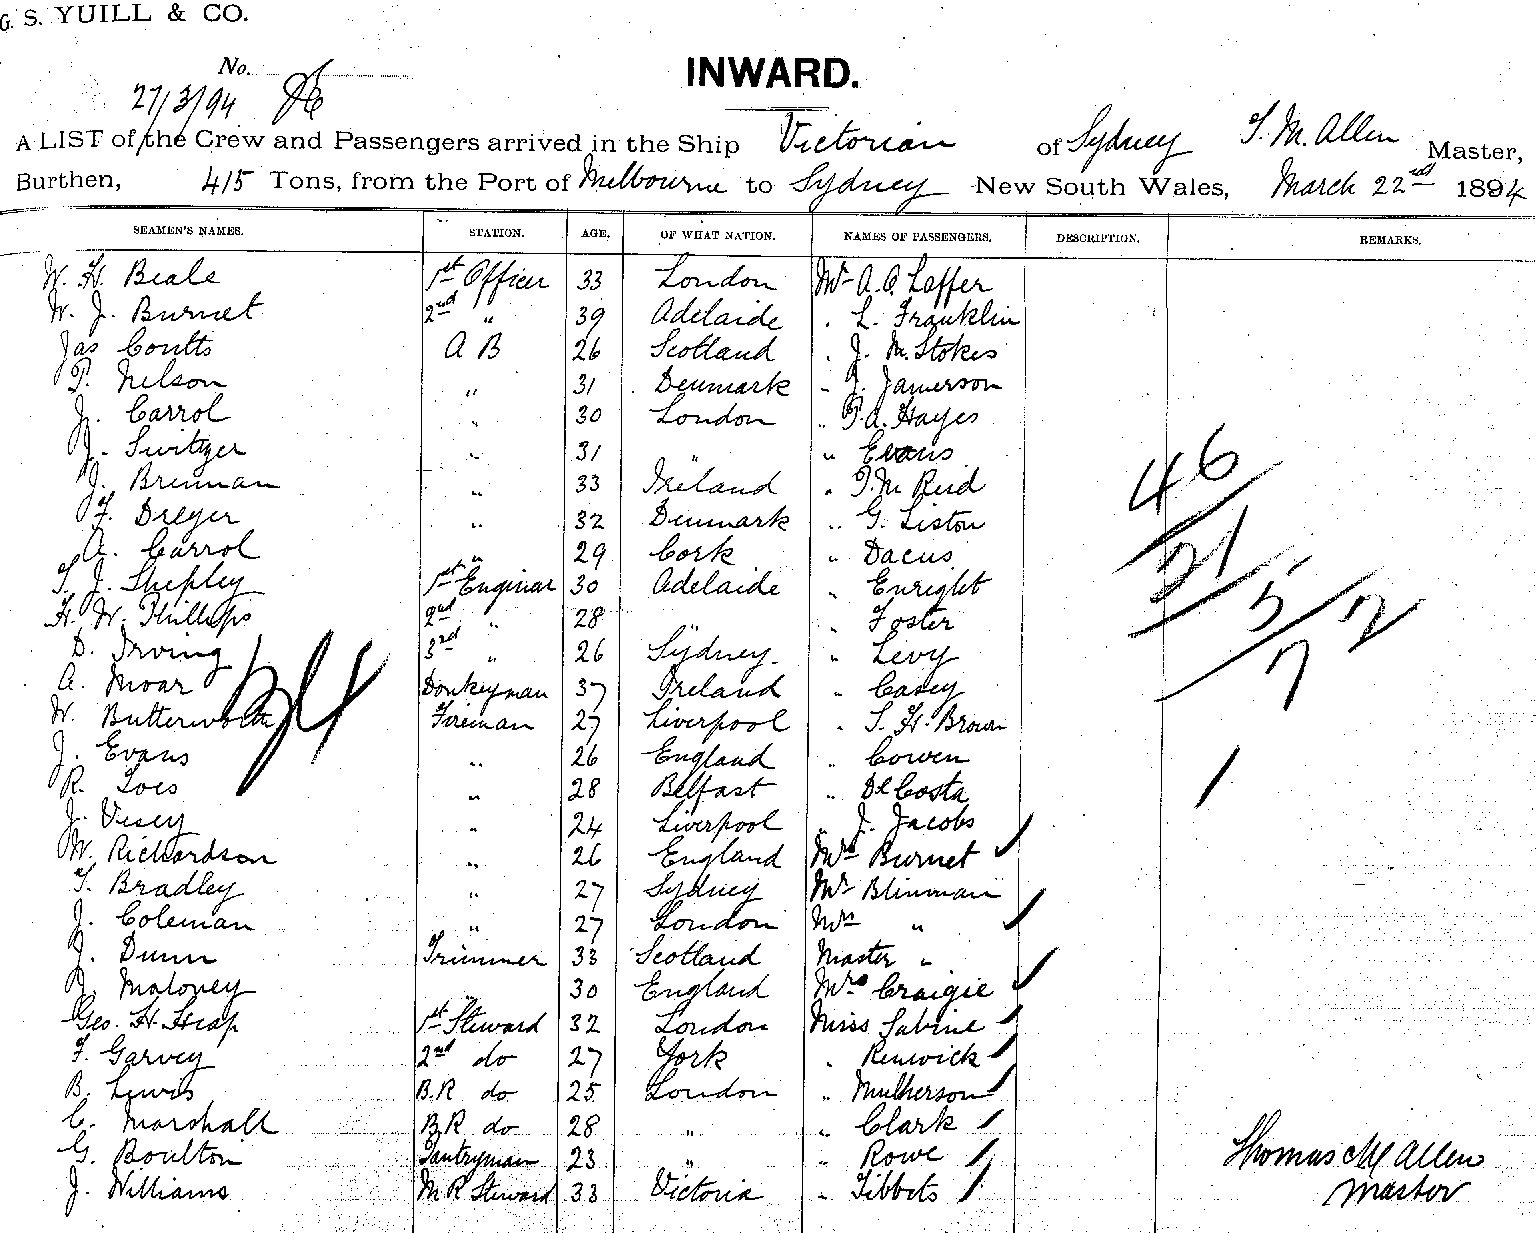 G. S. YUILL & CO.
No.
27/3/94
INWARD.
A LIST of the Crew and Passengers arrived in the Ship Victorian of Sydney T. M. Allen Master,
Burthen, 415 Tons, from the Port of Melbourne to Sydney New South Wales, March 22nd 1894
SEAMEN'S NAMES. STATION. AGE. OF WHAT NATION. NAMES OF PASSENGERS. DESCRIPTION. REMARKS.
W. H. Beale 1st Officer 33 London Mr A. C. Leffer
W. J. Burnet 2nd " 39 Adelaide " L. Franklin
Jas Coutts A B 26 Scotland " J. M. Stokes
P. Nelson " 31 Denmark " J. Jamerson
J. Carrol " 30 London " P. A. Hayes
J. Switzer " 31 " " Evans
J. Brennan " 33 Ireland " T. M. Reid
F. Dreyer " 32 Denmark " G. Liston
A. Carrol " 29 Cork " Dacus
T. J. Shepley 1st Enginear 30 Adelaide " Enright
H. W. Phillips 2nd " 28 " Foster
D. Irving 3rd " 26 Sydney " Levy
A. Moar Donkeyman 37 Ireland " Casey
W. Butterworth Fireman 27 Liverpool " T. H. Brown
J. Evans " 26 England " Cowen
R. Loes " 28 Belfast " De Costa
J. Vesey " 24 Liverpool " J. Jacobs
W. Richardson " 26 England Mrs Burnet
T. Bradley " 27 Sydney Mr Blinman
J. Coleman " 27 London Mrs "
J. Dunn Trimmer 33 Scotland Master "
J. Maloney " 30 England Mrs Craigie
Geo. H. Heap 1st Steward 32 London Miss Sabine
F. Garvey 2nd do 27 York " Renwick
B. Lewis B.R do 25 London " Mulherson
C. Marshall B.R do 28 " " Clark
G. Boulton Pantryman 23 " " Rowe
J. Williams M R Steward 33 Victoria " Tibbets
46
21
5
2
7
Thomas M Allen
Master